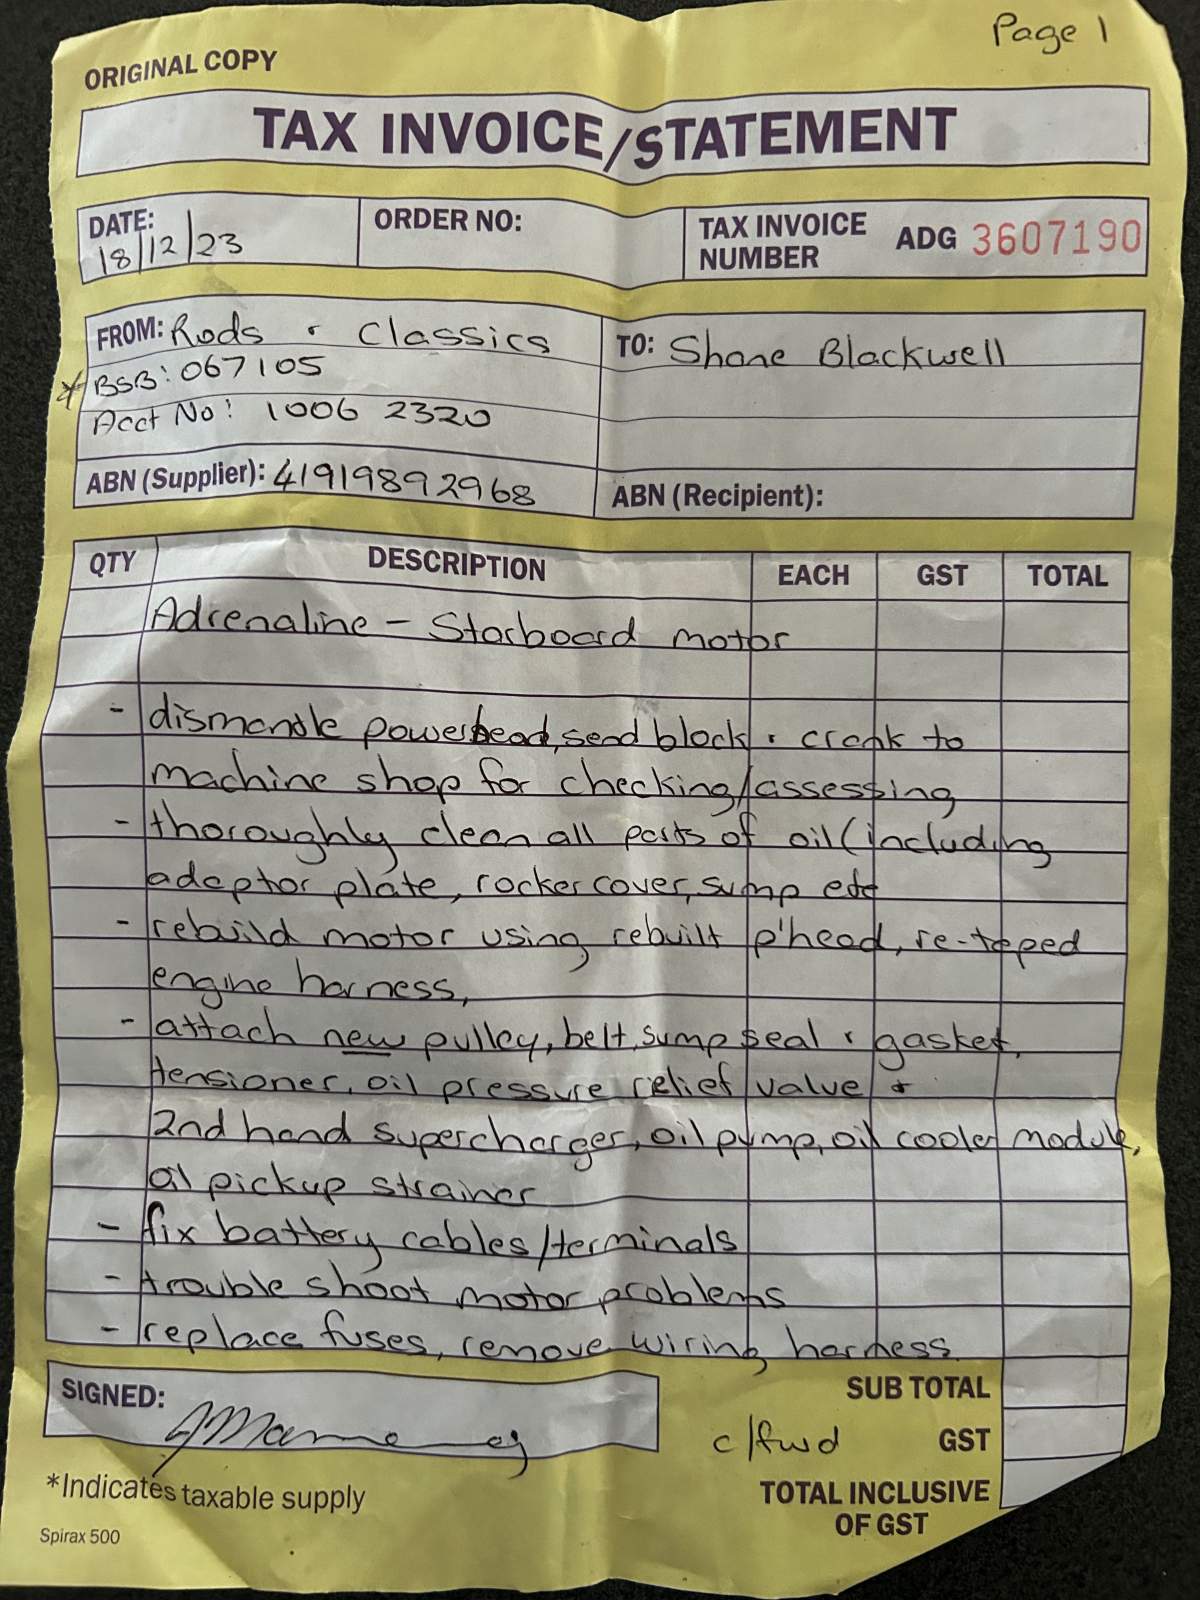 Page 1
ORIGINAL COPY
TAX INVOICE/STATEMENT
DATE: 18/12/23
ORDER NO:
TAX INVOICE NUMBER ADG 3607190
FROM: Rods & Classics
* BSB: 067105
Acct No: 1006 2320
TO: Shane Blackwell
ABN (Supplier): 41919892968
ABN (Recipient):
QTY DESCRIPTION EACH GST TOTAL
Adrenaline - Starboard motor
- dismantle powerhead, send block & crank to
machine shop for checking/assessing
- thoroughly clean all parts of oil (including
adaptor plate, rocker cover, sump etc
- rebuild motor using rebuilt p'head, re-taped
engine harness,
- attach new pulley, belt, sump seal & gasket,
tensioner, oil pressure relief value &
2nd hand supercharger, oil pump, oil cooler module,
oil pickup strainer
- fix battery cables/terminals
- trouble shoot motor problems
- replace fuses, remove wiring harness
SIGNED:
SUB TOTAL
c/fwd GST
TOTAL INCLUSIVE
OF GST
*Indicates taxable supply
Spirax 500